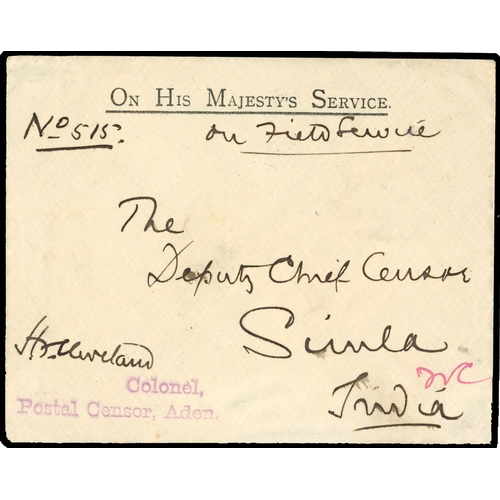 ON HIS MAJESTY'S SERVICE.
No 515. on Field Service
The
Deputy Chief Censor
Simla
India
Cleveland
Colonel,
Postal Censor, Aden.